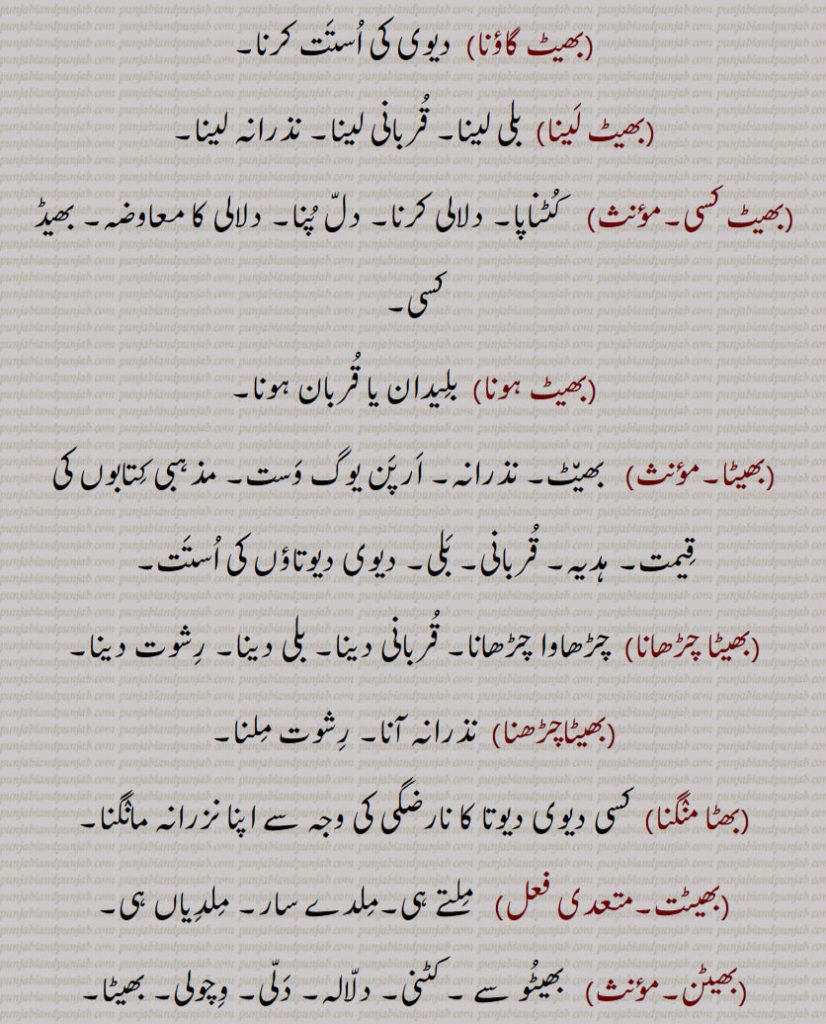 (بھیٹ گاؤنا) دیوی کی اُستَت کرنا۔
(بھیٹ لَینا) بلی لینا۔ قُربانی لینا۔ نذرانہ لینا۔
(بھیٹ کسی۔مؤنث) کُٹناپا۔ دلالی کرنا۔ دلّ پُنا۔ دلالی کا معاوضہ۔ بھیڈ
کسی۔
(بھیٹ ہونا) بلِیدان یا قُربان ہونا۔
(بھیٹا۔مؤنث) بھیٹّ۔ نذرانہ۔ اَرپَن یوگ وَست۔ مذہبی کِتابوں کی
قِیمت۔ ہدیہ۔ قُربانی۔ بَلی۔ دیوی دیوتاؤں کی اُستَت۔
(بھیٹا چڑھانا) چڑھاوا چڑھانا۔ قُربانی دینا۔ بلی دینا۔ رِشوت دینا۔
(بھیٹاچڑھنا) نذرانہ آنا۔ رِشوت مِلنا۔
(بھٹا منگنا) کسی دیوی دیوتا کا نارضگی کی وجہ سے اپنا نزرانہ مانگنا۔
(بھیٹت۔متعدی فعل) مِلتے ہی۔مِلدے سار۔ مِلدِیاں ہی۔
(بھیٹن۔مؤنث) بھیٹُو سے ۔ کٹنی۔ دلّالہ۔ دَلّی۔ وِچولی۔ بھیٹا۔
punjabiandpunjab.com